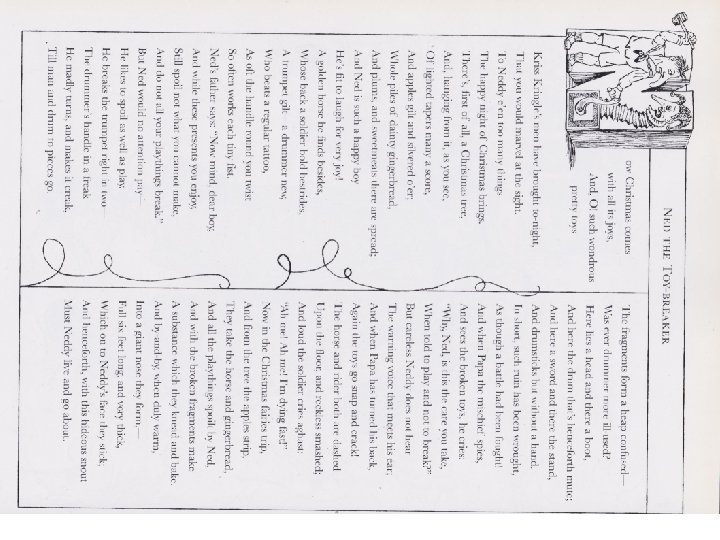 NED THE TOY BREAKER
ow Christmas comes
with all its joys,
And, O! such wondrous
pretty toys
Kriss Kringle's men have brought to-night,
That you would marvel at the sight.
To Neddy e'en too many things
The happy night of Christmas brings,
There's first of all, a Christmas tree,
And, hanging from it, as you see,
Of lighted tapers many a score,
And apples gilt and silvered o'er;
Whole piles of dainty gingerbread,
And plums, and sweetmeats there are spread;
And Ned is such a happy boy
He's fit to laugh for very joy!
A golden horse he finds besides,
Whose back a soldier bold bestrides,
A trumpet gilt a drummer new,
Who beats a regular tattoo,
As oft the handle round you twist
So often works each tiny fist.
Ned's father says: "Now mind, dear boy,
And while these presents you enjoy,
Still spoil not what you cannot make,
And do not all your playthings break."
But Ned would no attention pay—
He likes to spoil as well as play.
He breaks the trumpet right in two—
The drummer's handle in a freak
He madly turns, and makes it creak,
Till man and drum to pieces go.
The fragments form a heap confused—
Was ever drummer more ill used?
Here lies a head and there a boot,
And here the drum that's henceforth mute;
And here a sword and there the stand,
And drumsticks but without a hand.
In short, such ruin has been wrought,
As though a battle had been fought!
And when Papa the mischief spies,
And sees the broken toys, he cries:
"Why, Ned, is this the care you take,
When told to play and not to break?"
But careless Neddy does not hear
The warning voice that meets his ear;
And when Papa has turned his back,
Again the toys go snap and crack!
The horse and rider both are dashed
Upon the floor, and reckless smashed;
And loud the soldier cries aghast:
"Ah me! Ah me! I'm dying fast!"
Now in the Christmas fairies trip,
And from the tree the apples strip,
They take the horse and gingerbread,
And all the playthings spoilt by Ned,
And with the broken fragments make
A substance which they knead and bake.
And by-and-by, when duly warm,
Into a giant nose they form,—
Full six feet long and very thick,
Which on to Neddy's face they stick,
And henceforth, with this hideous snout
Must Neddy live and go about.